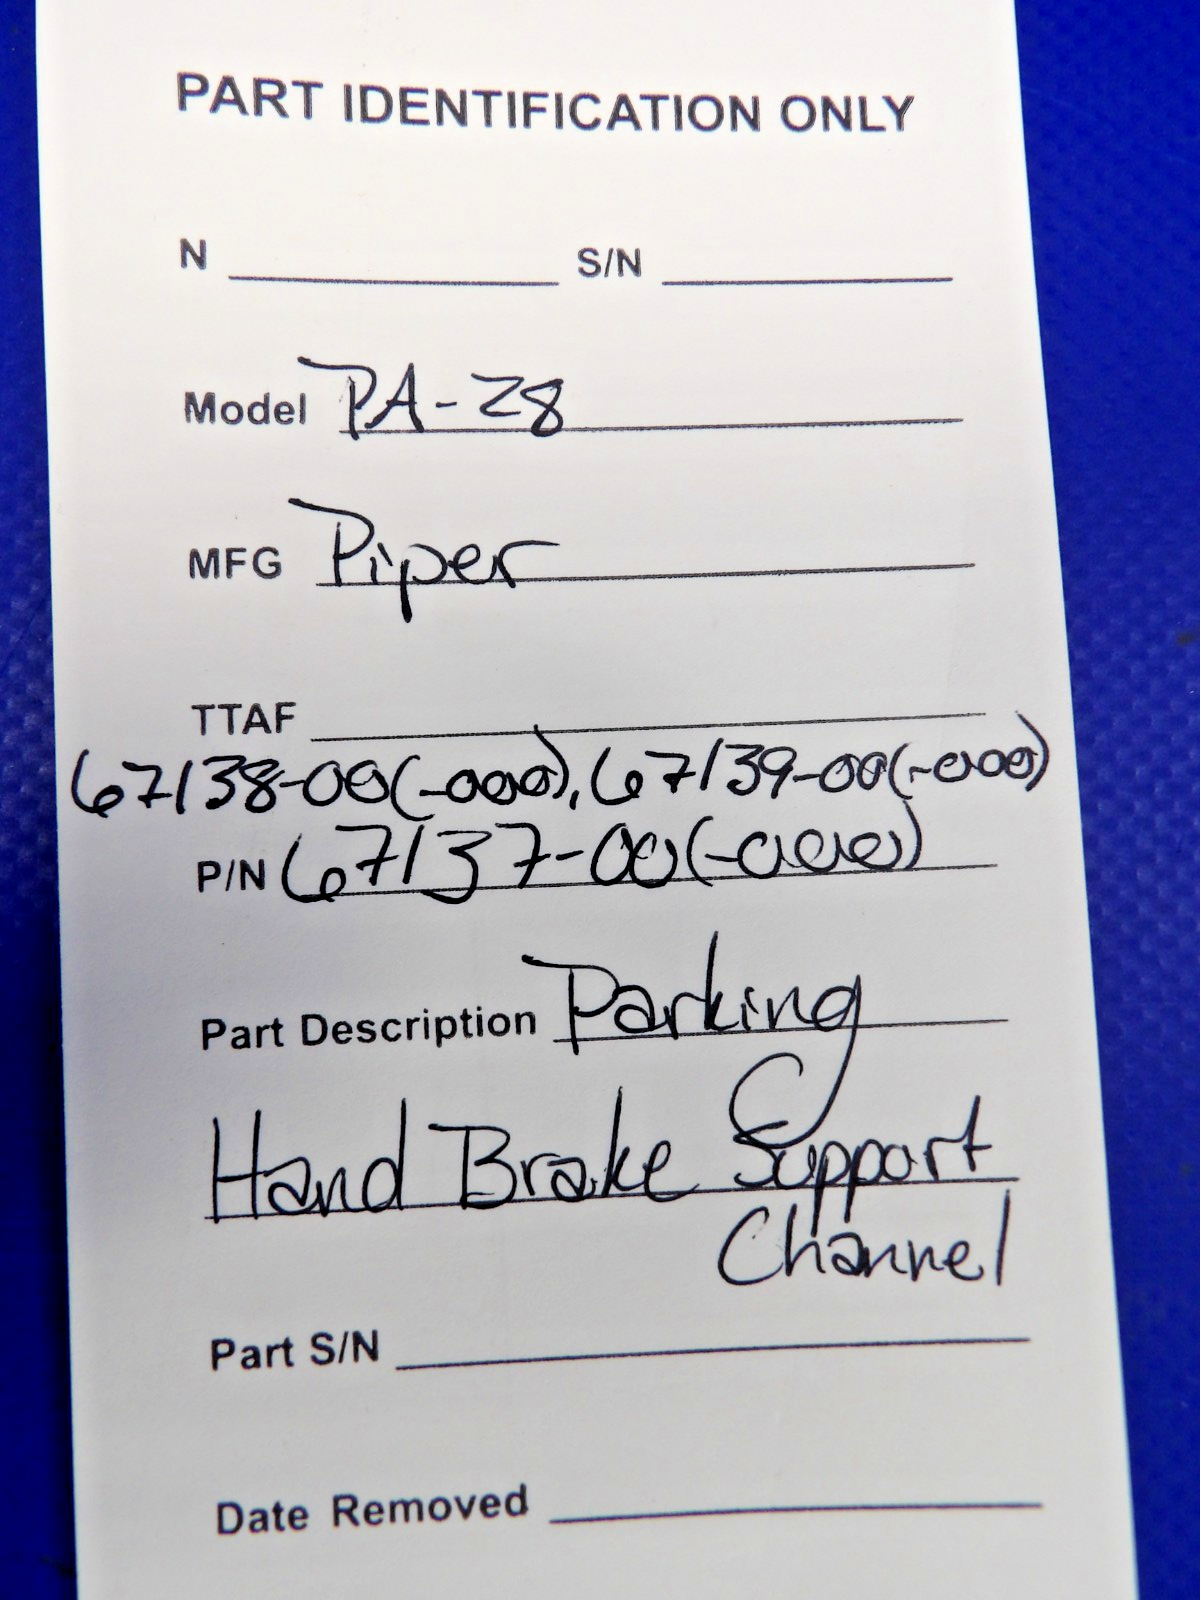 PART IDENTIFICATION ONLY
N S/N
Model PA-28
MFG Piper
TTAF
67138-00(-000), 67139-00(-000)
P/N 67137-00(-000)
Part Description Parking
Hand Brake Support
Channel
Part S/N
Date Removed